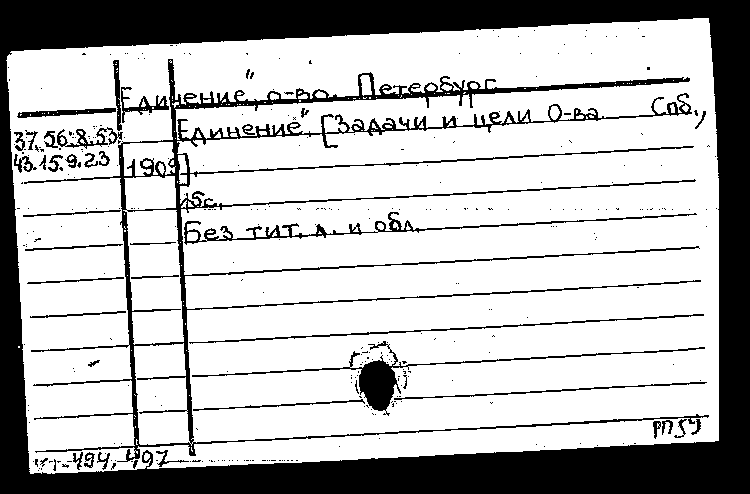 Единение", о-во. Петербург
37.56.8.53 Единение". [Задачи и цели О-ва Спб.,
43.15.9.23 1909].
15с.
Без тит. л. и обл.
РП59
ЧТ-494, 497